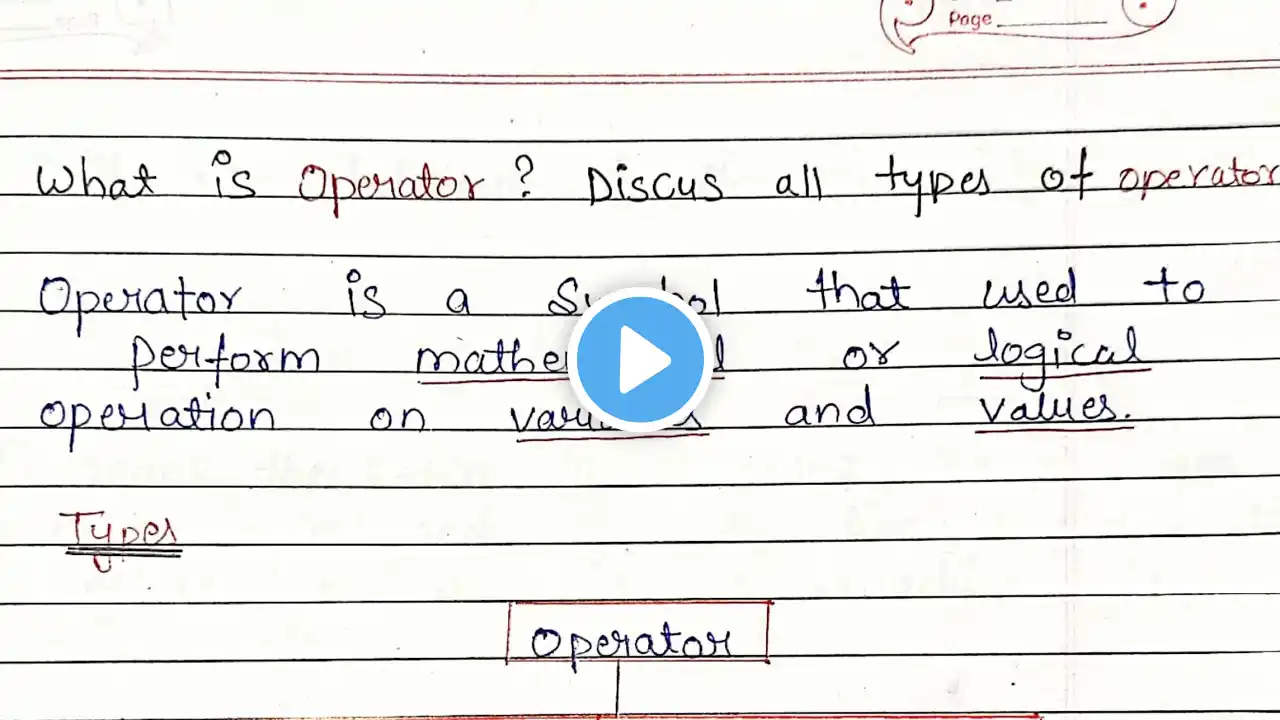 Page
What is Operator? Discus all types of operator
Operator is a that used to
perform or logical
operation on and values.
Types
Operator